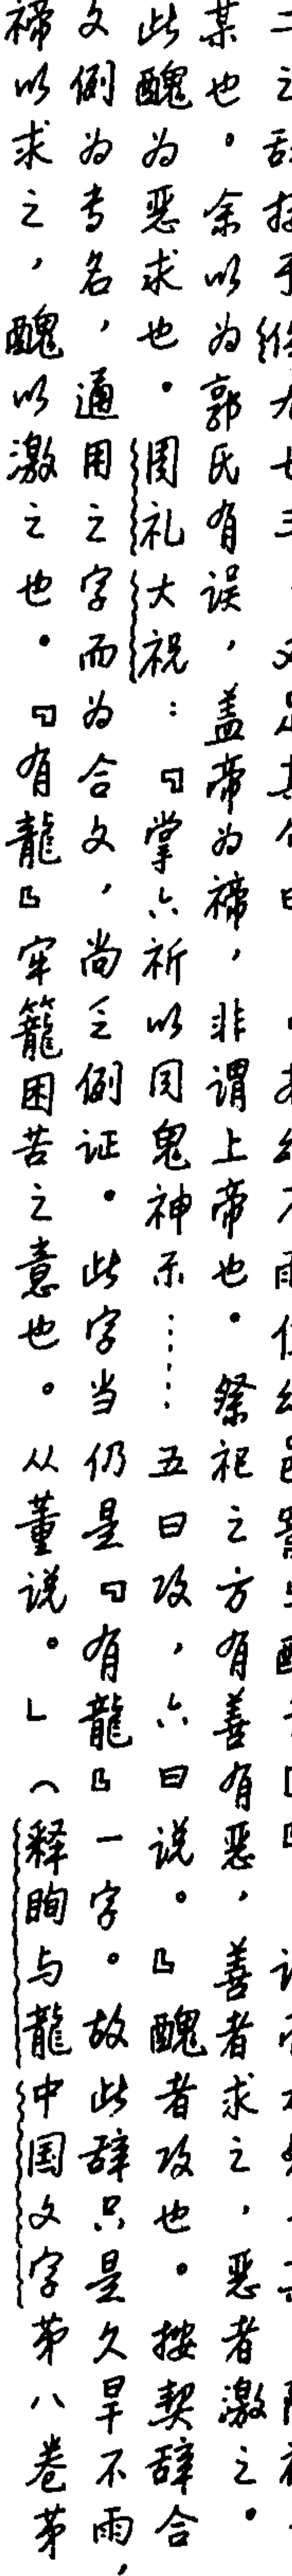 某也。余以为郭氏有误，盖帝为禘，非谓上帝也。祭祀之方有善有恶，善者求之，恶者激之。
此醜为恶求也。周礼大祝：『掌六祈以同鬼神示……五曰攻，六曰说。』醜者攻也。按契辞合
文例为专名，通用之字而为合文，尚乏例证。此字当仍是『有龍』一字。故此辞只是久旱不雨，
禘以求之，醜以激之也。『有龍』牢籠困苦之意也。从董说。」（释眴与龍中国文字第八卷第